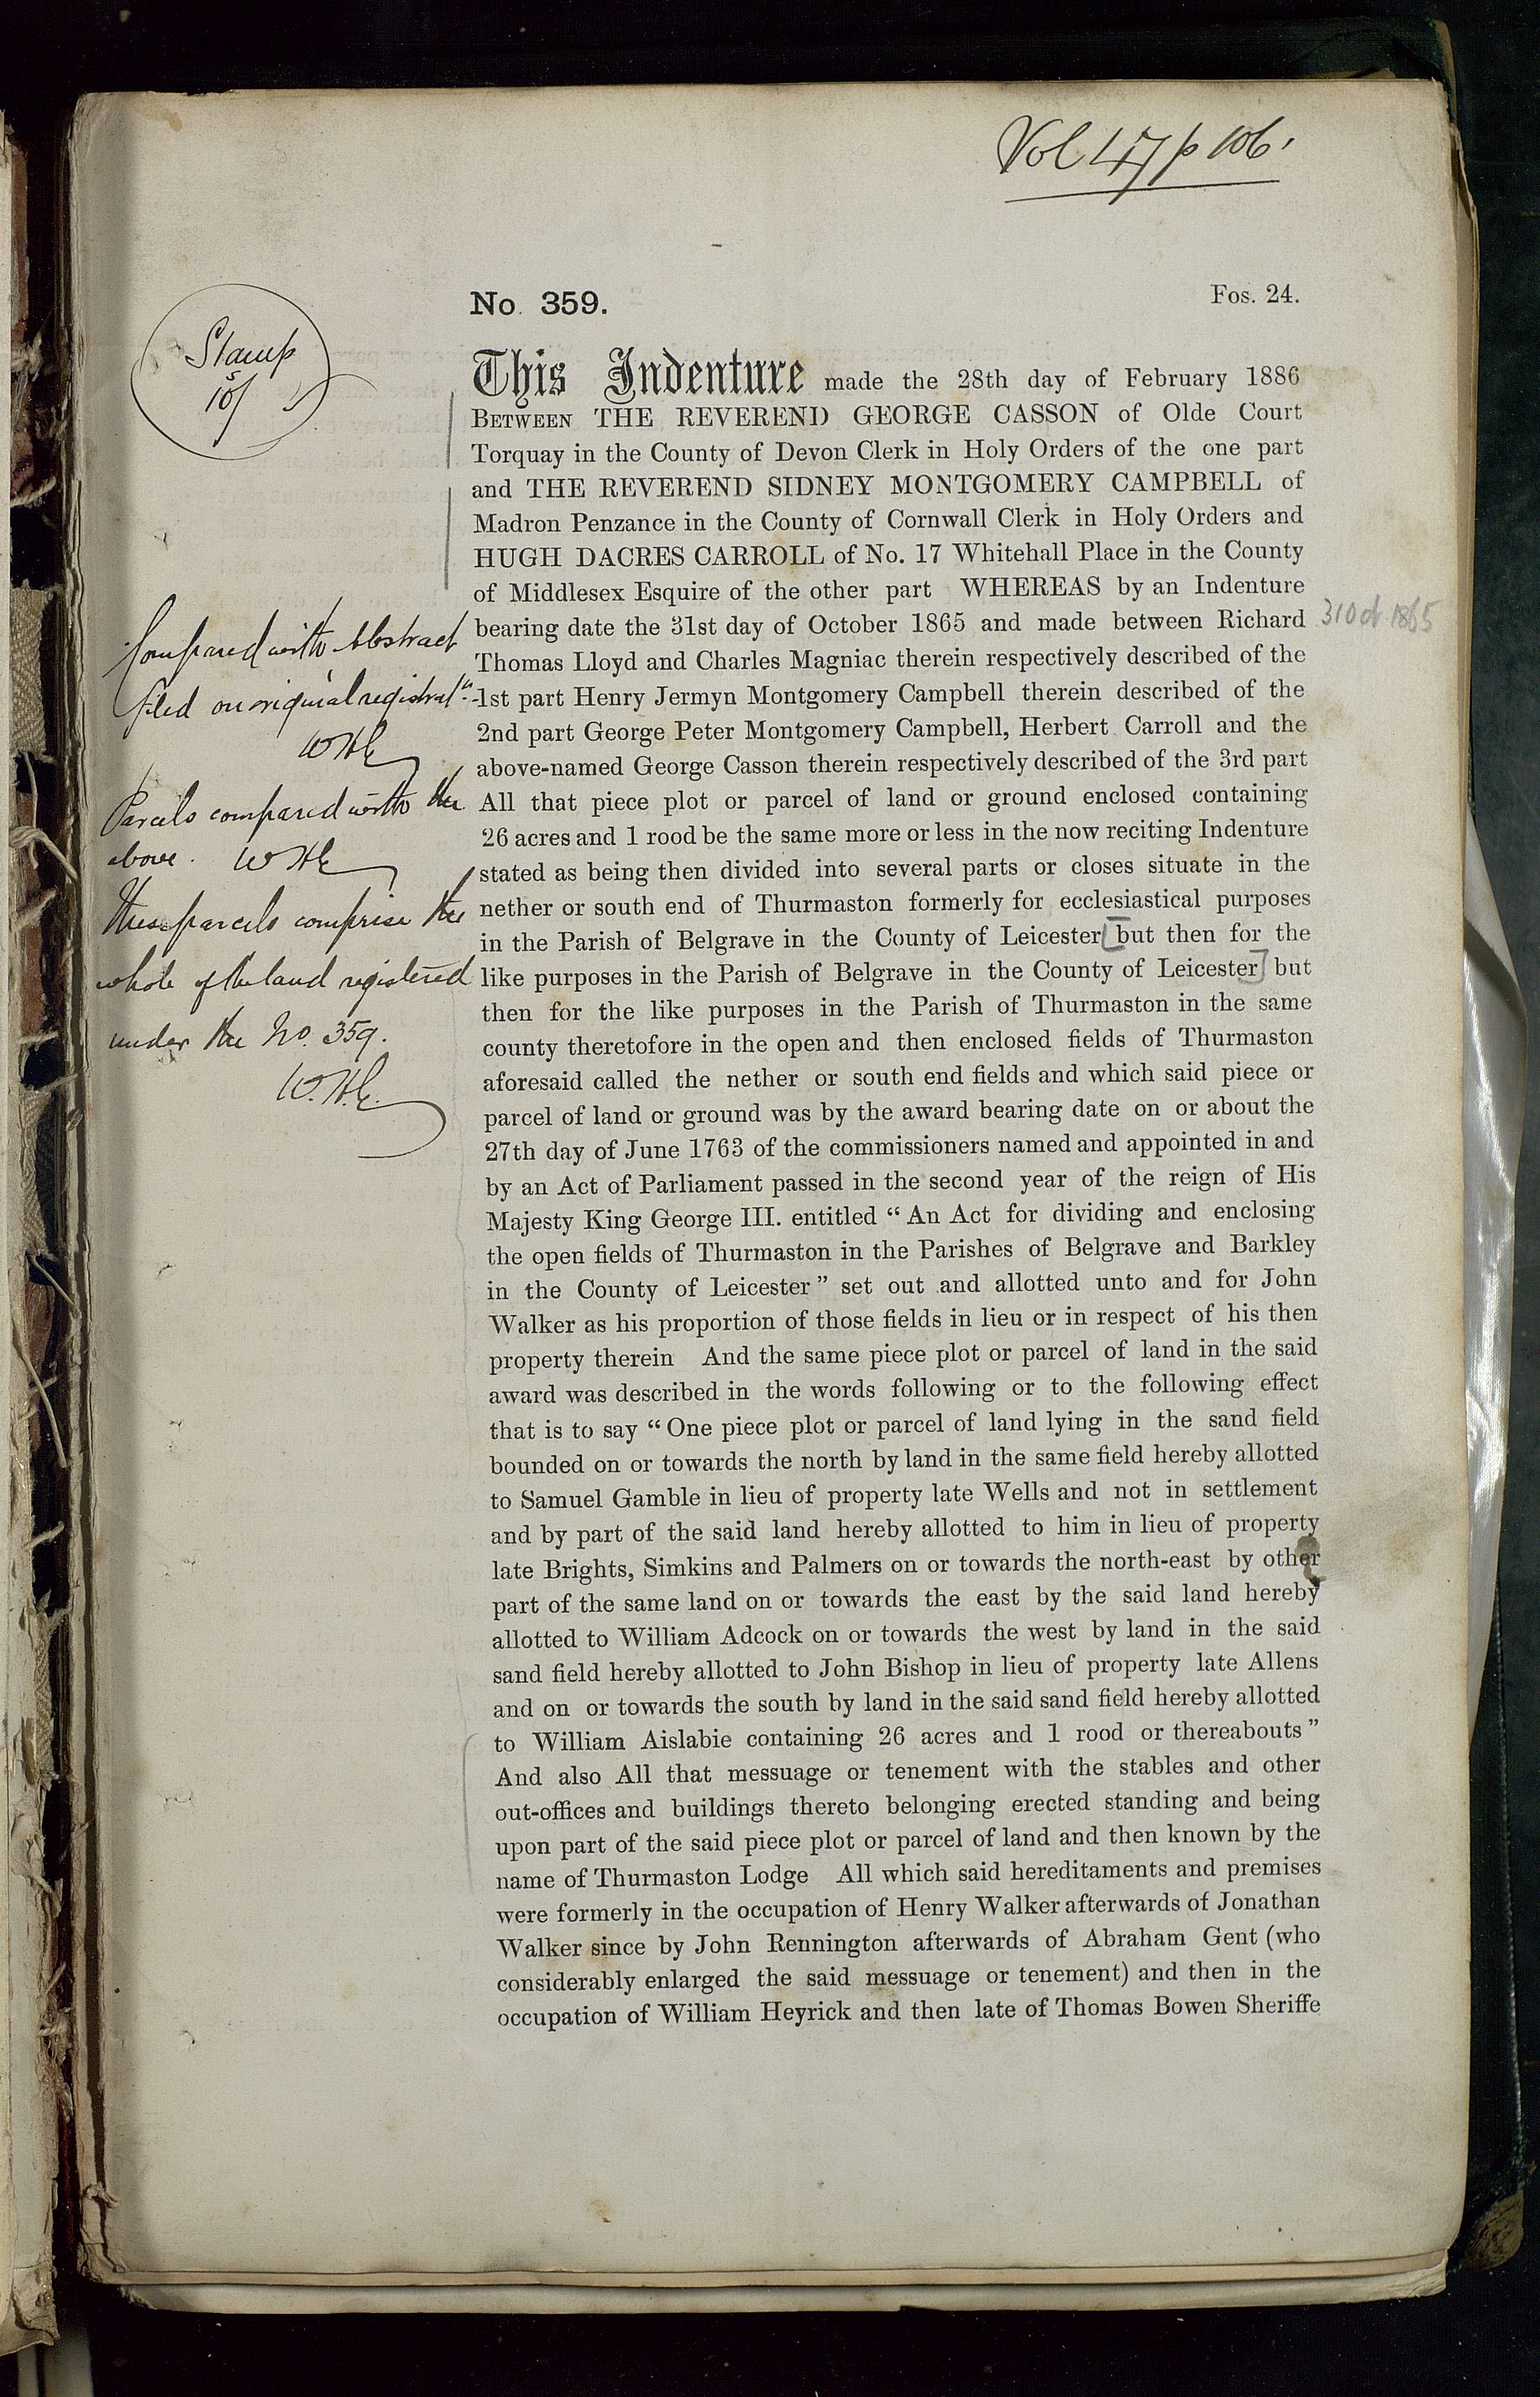 Vol 47 p 106.
No. 359.
Fos. 24.
Stamp
10/
This Indenture made the 28th day of February 1886
BETWEEN THE REVEREND GEORGE CASSON of Olde Court
Torquay in the County of Devon Clerk in Holy Orders of the one part
and THE REVEREND SIDNEY MONTGOMERY CAMPBELL of
Madron Penzance in the County of Cornwall Clerk in Holy Orders and
HUGH DACRES CARROLL of No. 17 Whitehall Place in the County
of Middlesex Esquire of the other part WHEREAS by an Indenture
bearing date the 31st day of October 1865 and made between Richard
31 Oct 1865
Thomas Lloyd and Charles Magniac therein respectively described of the
1st part Henry Jermyn Montgomery Campbell therein described of the
2nd part George Peter Montgomery Campbell, Herbert Carroll and the
above-named George Casson therein respectively described of the 3rd part
All that piece plot or parcel of land or ground enclosed containing
26 acres and 1 rood be the same more or less in the now reciting Indenture
stated as being then divided into several parts or closes situate in the
nether or south end of Thurmaston formerly for ecclesiastical purposes
in the Parish of Belgrave in the County of Leicester [but then for the
like purposes in the Parish of Belgrave in the County of Leicester] but
then for the like purposes in the Parish of Thurmaston in the same
county theretofore in the open and then enclosed fields of Thurmaston
aforesaid called the nether or south end fields and which said piece or
parcel of land or ground was by the award bearing date on or about the
27th day of June 1763 of the commissioners named and appointed in and
by an Act of Parliament passed in the second year of the reign of His
Majesty King George III. entitled “ An Act for dividing and enclosing
the open fields of Thurmaston in the Parishes of Belgrave and Barkley
in the County of Leicester ” set out and allotted unto and for John
Walker as his proportion of those fields in lieu or in respect of his then
property therein And the same piece plot or parcel of land in the said
award was described in the words following or to the following effect
that is to say “ One piece plot or parcel of land lying in the sand field
bounded on or towards the north by land in the same field hereby allotted
to Samuel Gamble in lieu of property late Wells and not in settlement
and by part of the said land hereby allotted to him in lieu of property
late Brights, Simkins and Palmers on or towards the north-east by other
part of the same land on or towards the east by the said land hereby
allotted to William Adcock on or towards the west by land in the said
sand field hereby allotted to John Bishop in lieu of property late Allens
and on or towards the south by land in the said sand field hereby allotted
to William Aislabie containing 26 acres and 1 rood or thereabouts ”
And also All that messuage or tenement with the stables and other
out-offices and buildings thereto belonging erected standing and being
upon part of the said piece plot or parcel of land and then known by the
name of Thurmaston Lodge All which said hereditaments and premises
were formerly in the occupation of Henry Walker afterwards of Jonathan
Walker since by John Rennington afterwards of Abraham Gent (who
considerably enlarged the said messuage or tenement) and then in the
occupation of William Heyrick and then late of Thomas Bowen Sheriffe
Compared with Abstract
filed on original registratn.
WHC
Parcels compared with the
above. WHC
These parcels comprise the
whole of the land registered
under the No. 359.
W.H.C.